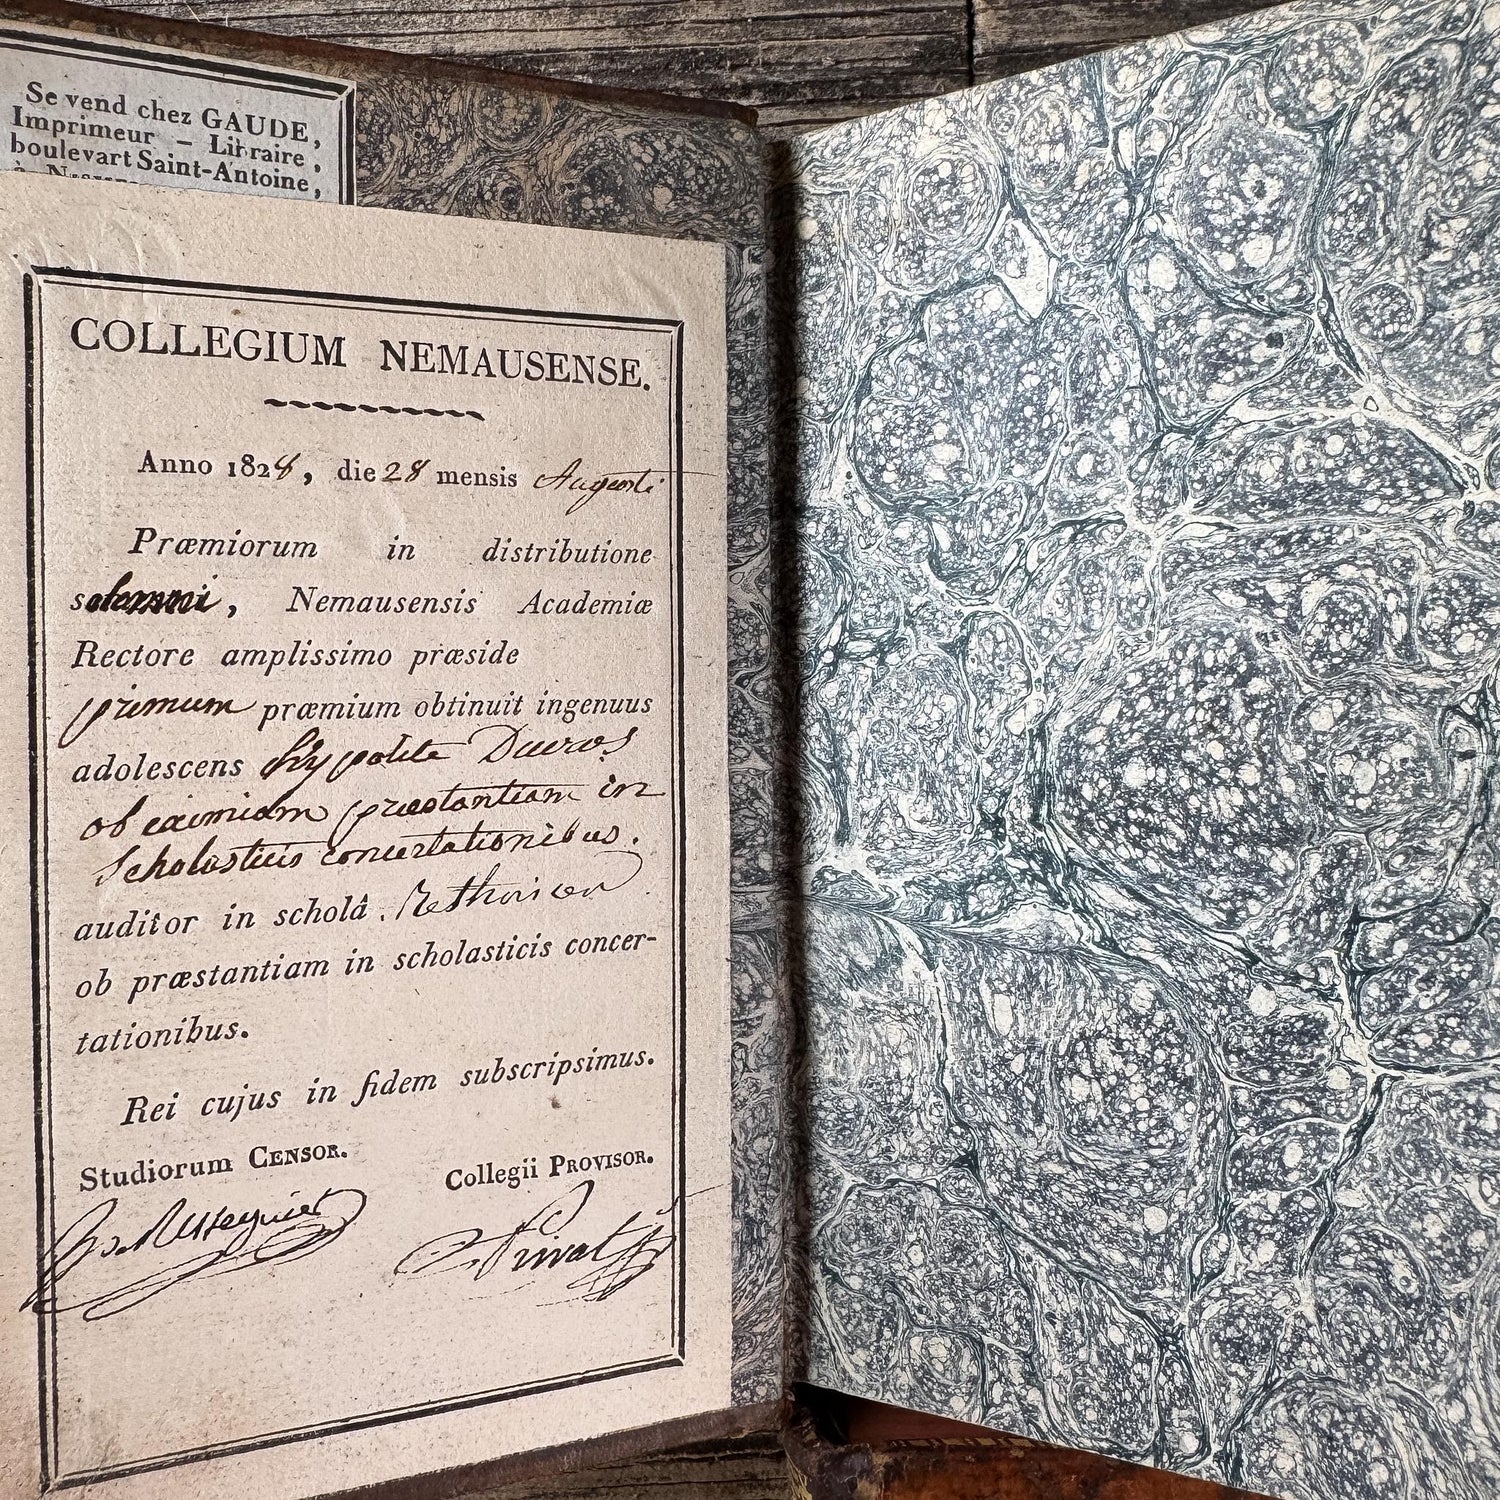 Se vend chez GAUDE,
Imprimeur – Libraire,
boulevart Saint-Antoine,
COLLEGIUM NEMAUSENSE.
Anno 1828, die 28 mensis Augusti
Præmiorum in distributione
solemni, Nemausensis Academiæ
Rectore amplissimo præside
primum præmium obtinuit ingenuus
adolescens hypolite Duvros
ob eximiam præstantiam in
scholasticis concertationibus.
auditor in scholâ Rethorices
ob præstantiam in scholasticis concer-
tationibus.
Rei cujus in fidem subscripsimus.
Studiorum CENSOR.
Collegii PROVISOR.
Privat